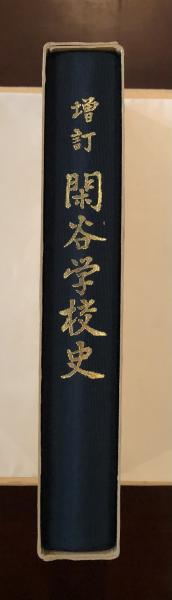 増訂
閑谷学校史